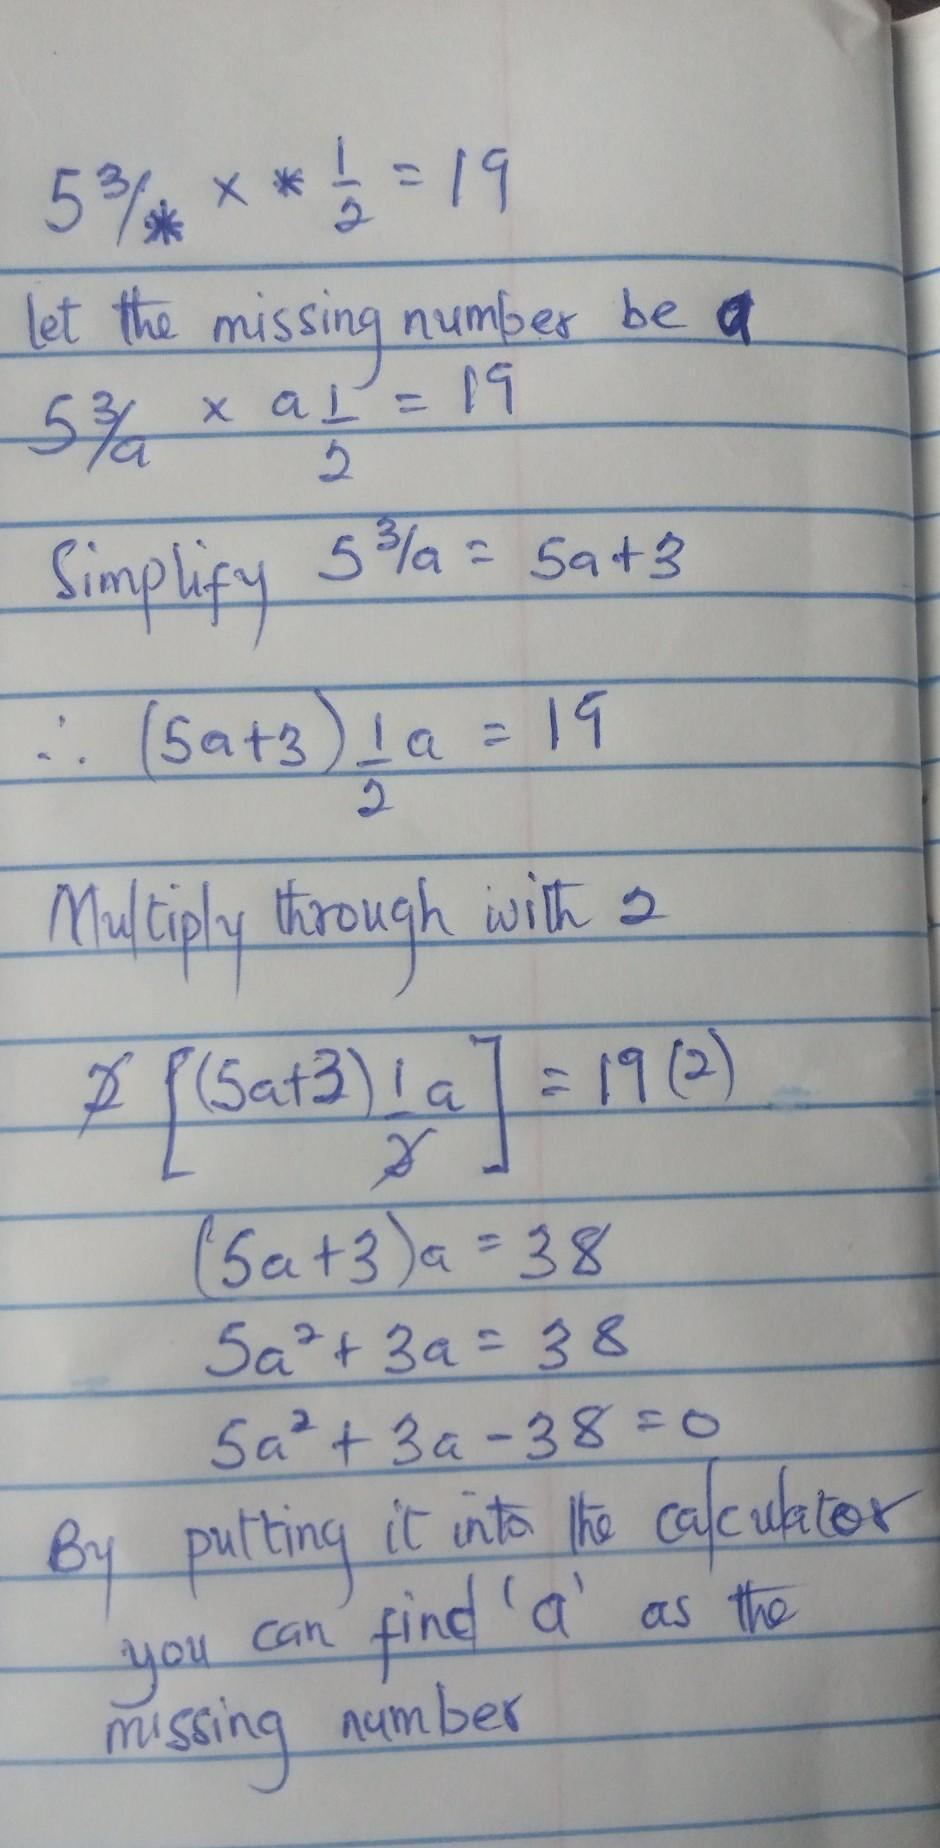 5 3/* × * 1/2 = 19
let the missing number be a
5 3/a × a 1/2 = 19
Simplify 5 3/a = 5a+3
∴ (5a+3) 1/2 a = 19
Multiply through with 2
2 [(5a+3) 1/2 a] = 19(2)
(5a+3)a = 38
5a² + 3a = 38
5a² + 3a - 38 = 0
By putting it into the calculator
you can find 'a' as the
missing number